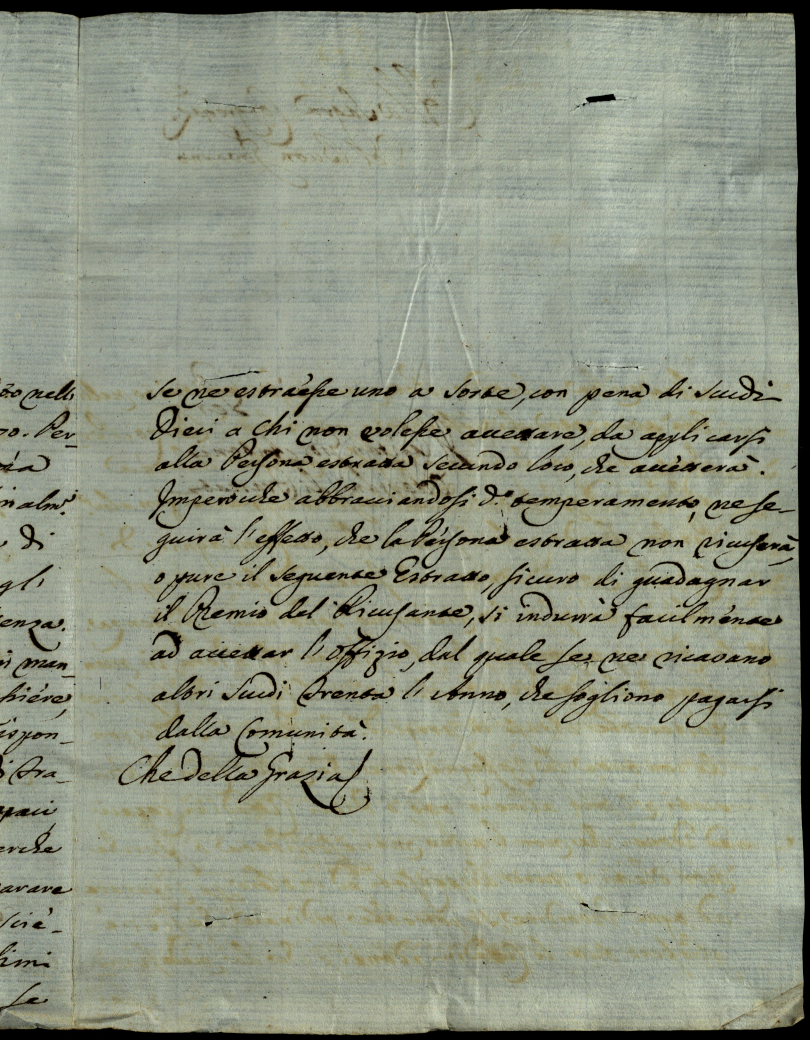 to nell
o. Per_
za
inalm.e
di
gl'
enza.
man_
siére,
ispon_
tra_
paci
erche
arare
scie_
simi
se
se ne estraesse uno a sorte, con pena di scudi
Dieci a chi non volesse accettare, da applicarsi
alla Persona estratta secundo loco, che accetterà.
Imperocche abbracciandosi d.o temperamento, ne se_
guirà l'effetto, che la Persona estratta non ricuserà,
o pure il seguente Estratto, sicuro di guadagnar
il Premio del Ricusante, si indurrà facilmente
ad accettar l'Offizio, dal quale se ne ricavano
altri scudi trenta l'Anno, che sogliono pagarsi
dalla Comunità.
Che della Grazia